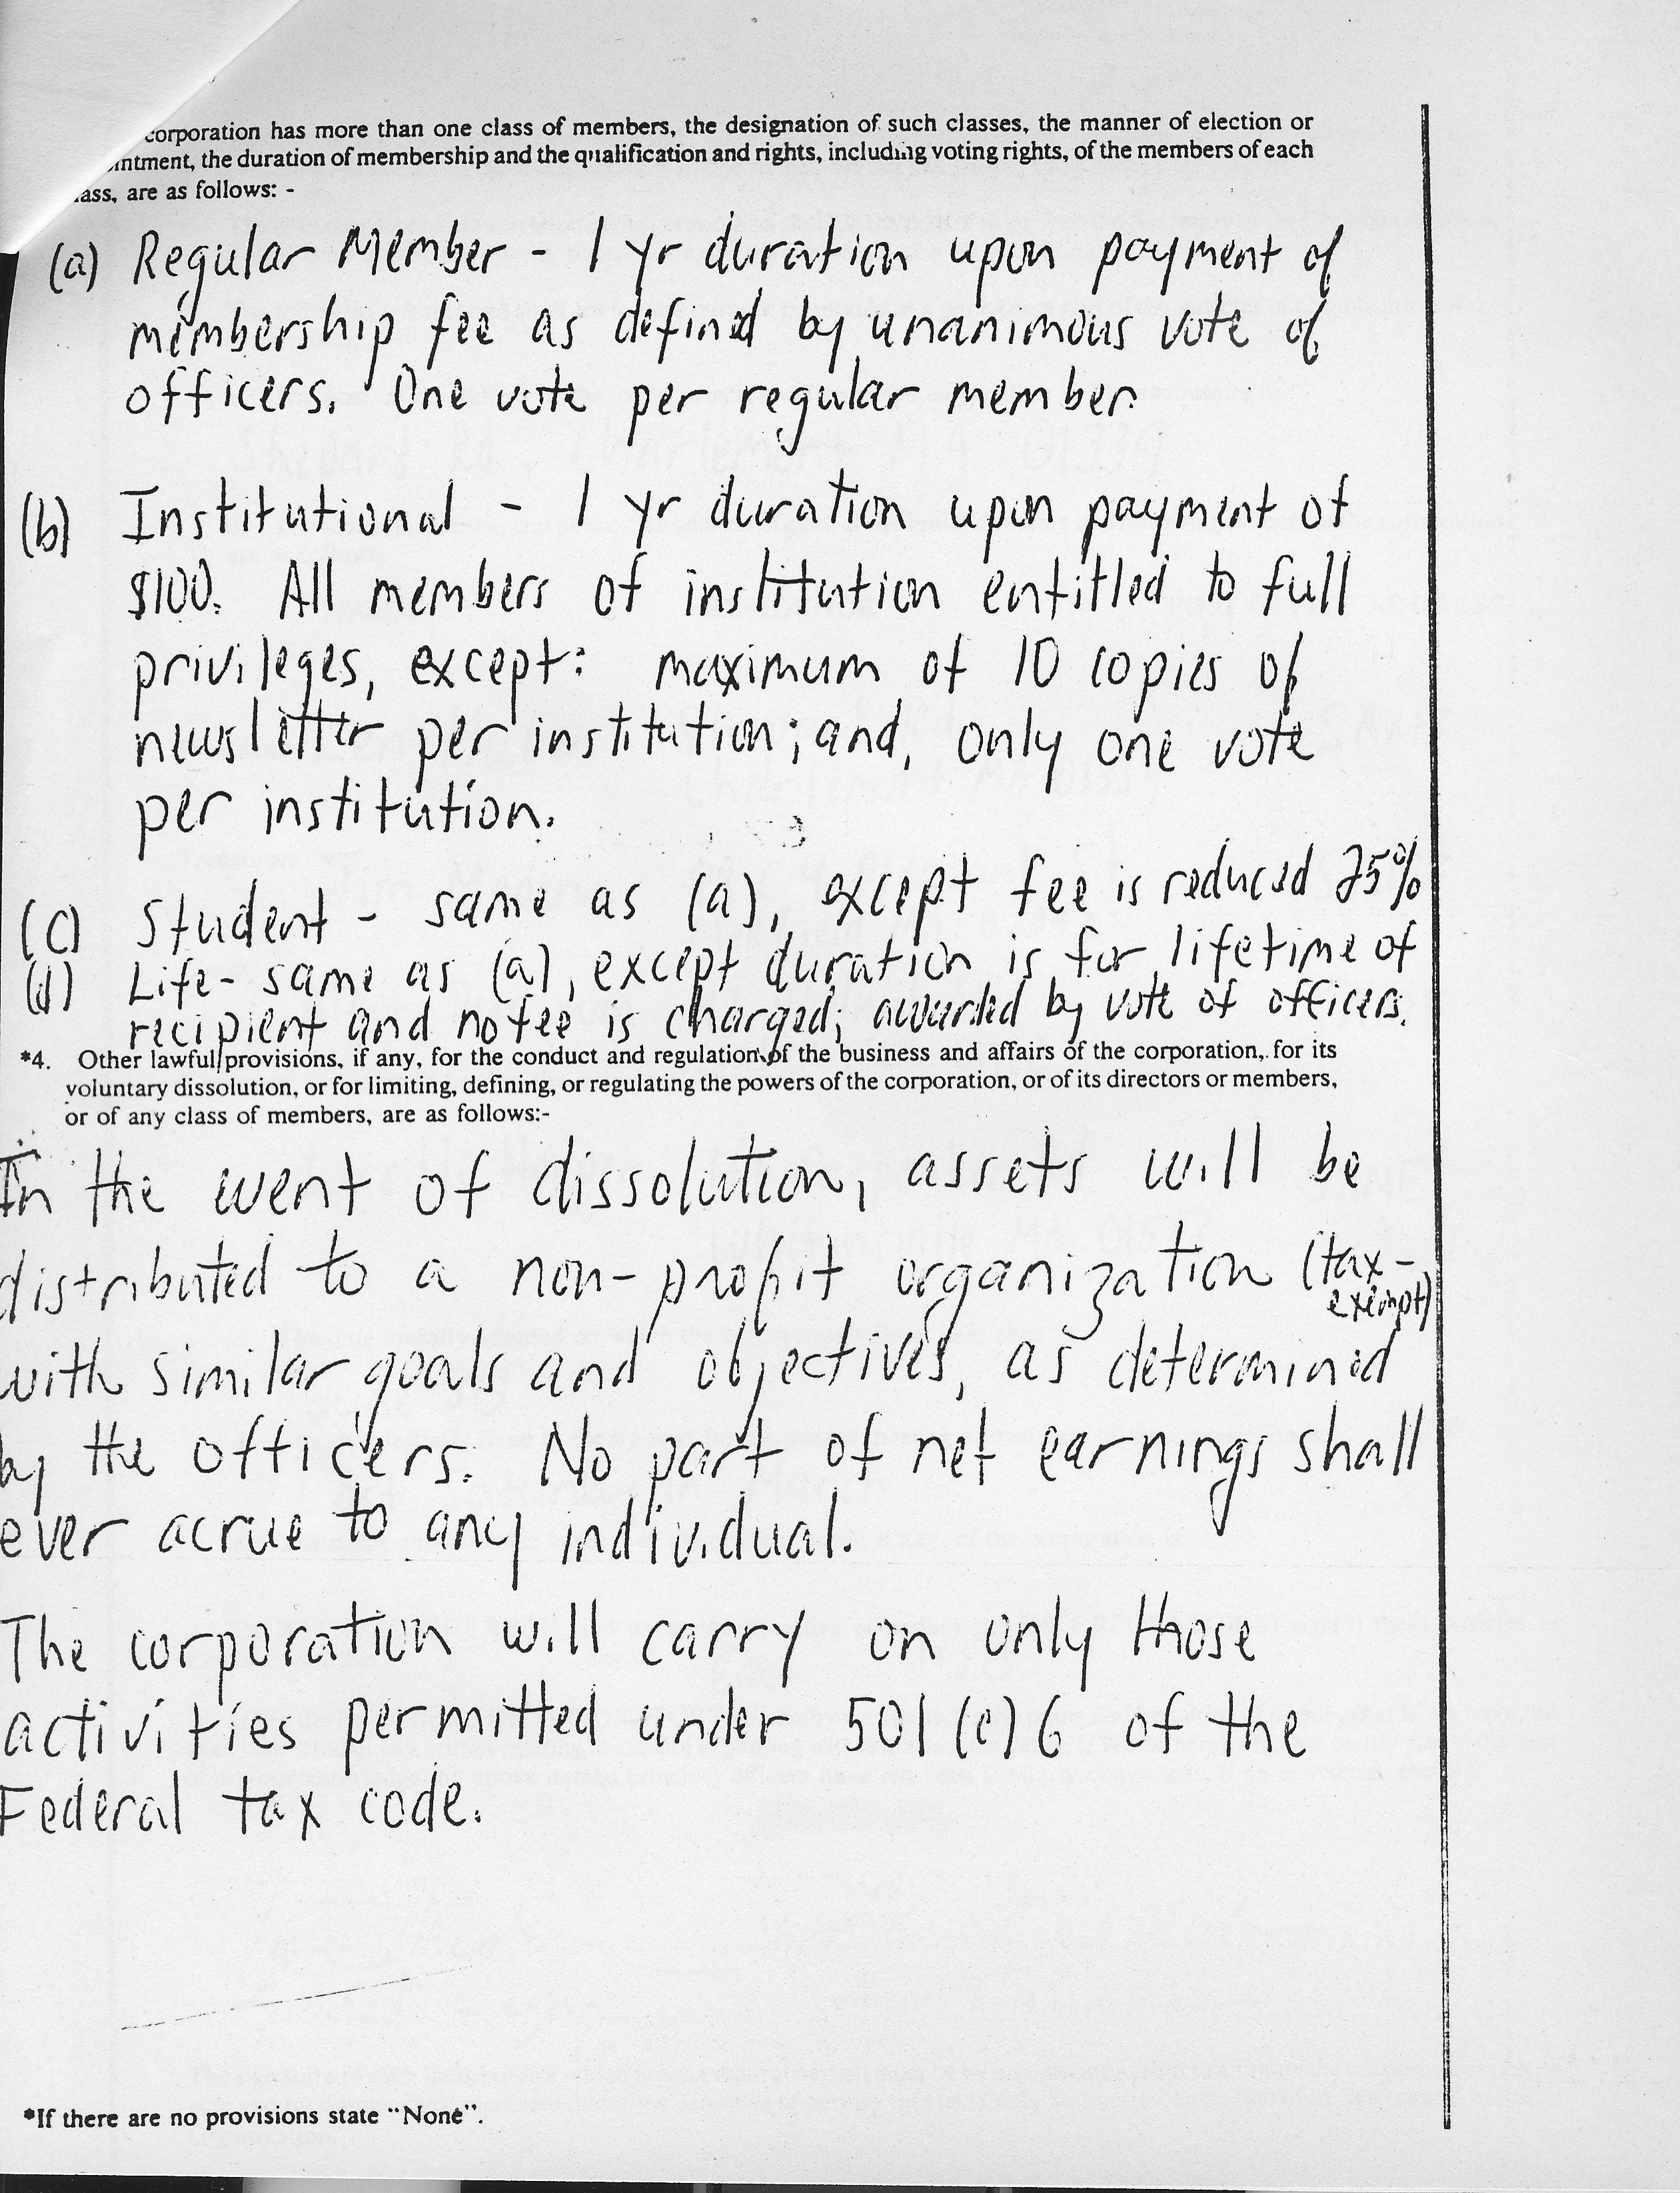 corporation has more than one class of members, the designation of such classes, the manner of election or
intment, the duration of membership and the qualification and rights, including voting rights, of the members of each
ass, are as follows: -
(a) Regular Member - 1 yr duration upon payment of
membership fee as defined by unanimous vote of
officers. One vote per regular member.
(b) Institutional - 1 yr duration upon payment of
$100. All members of institution entitled to full
privileges, except: maximum of 10 copies of
newsletter per institution; and, only one vote
per institution.
(c) Student - same as (a), except fee is reduced 25%
(d) Life - same as (a), except duration is for lifetime of
recipient and no fee is charged; awarded by vote of officers.
*4. Other lawful provisions, if any, for the conduct and regulation of the business and affairs of the corporation, for its
voluntary dissolution, or for limiting, defining, or regulating the powers of the corporation, or of its directors or members,
or of any class of members, are as follows:-
In the event of dissolution, assets will be
distributed to a non-profit organization (tax-
exempt)
with similar goals and objectives, as determined
by the officers. No part of net earnings shall
ever acrue to any individual.
The corporation will carry on only those
activities permitted under 501(c)6 of the
Federal tax code.
*If there are no provisions state "None".